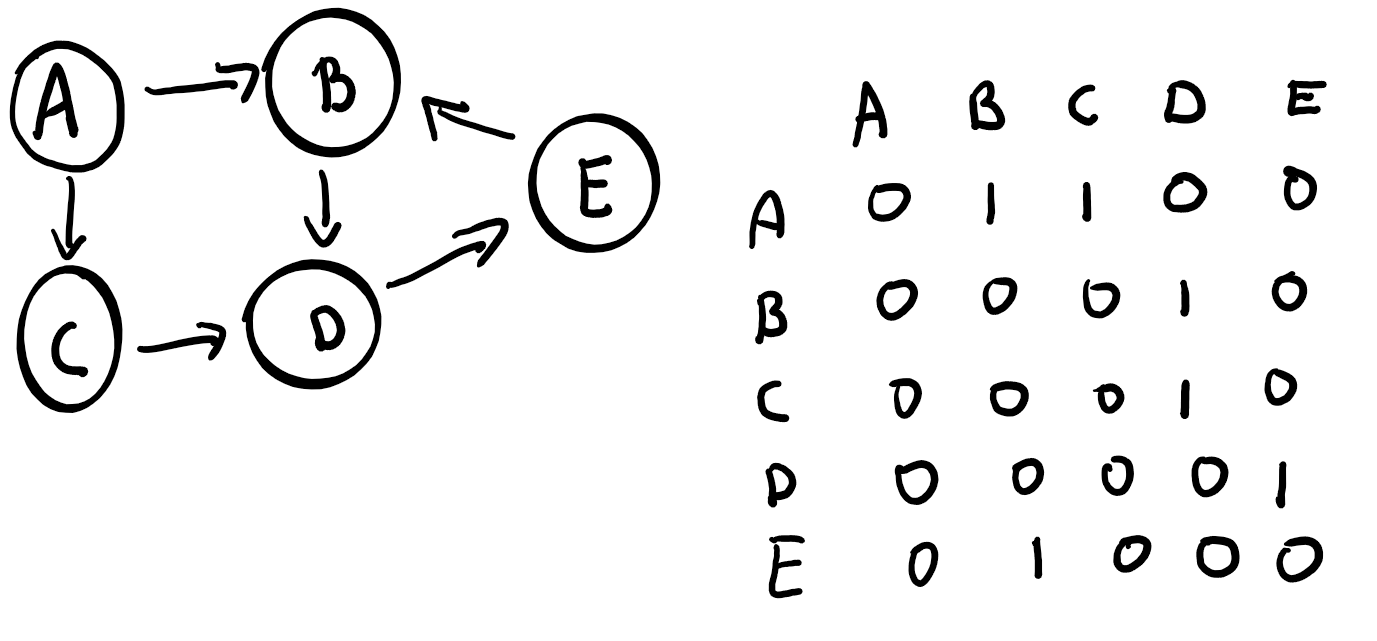 A
B
E
C
D
A B C D E
A 0 1 1 0 0
B 0 0 0 1 0
C 0 0 0 1 0
D 0 0 0 0 1
E 0 1 0 0 0